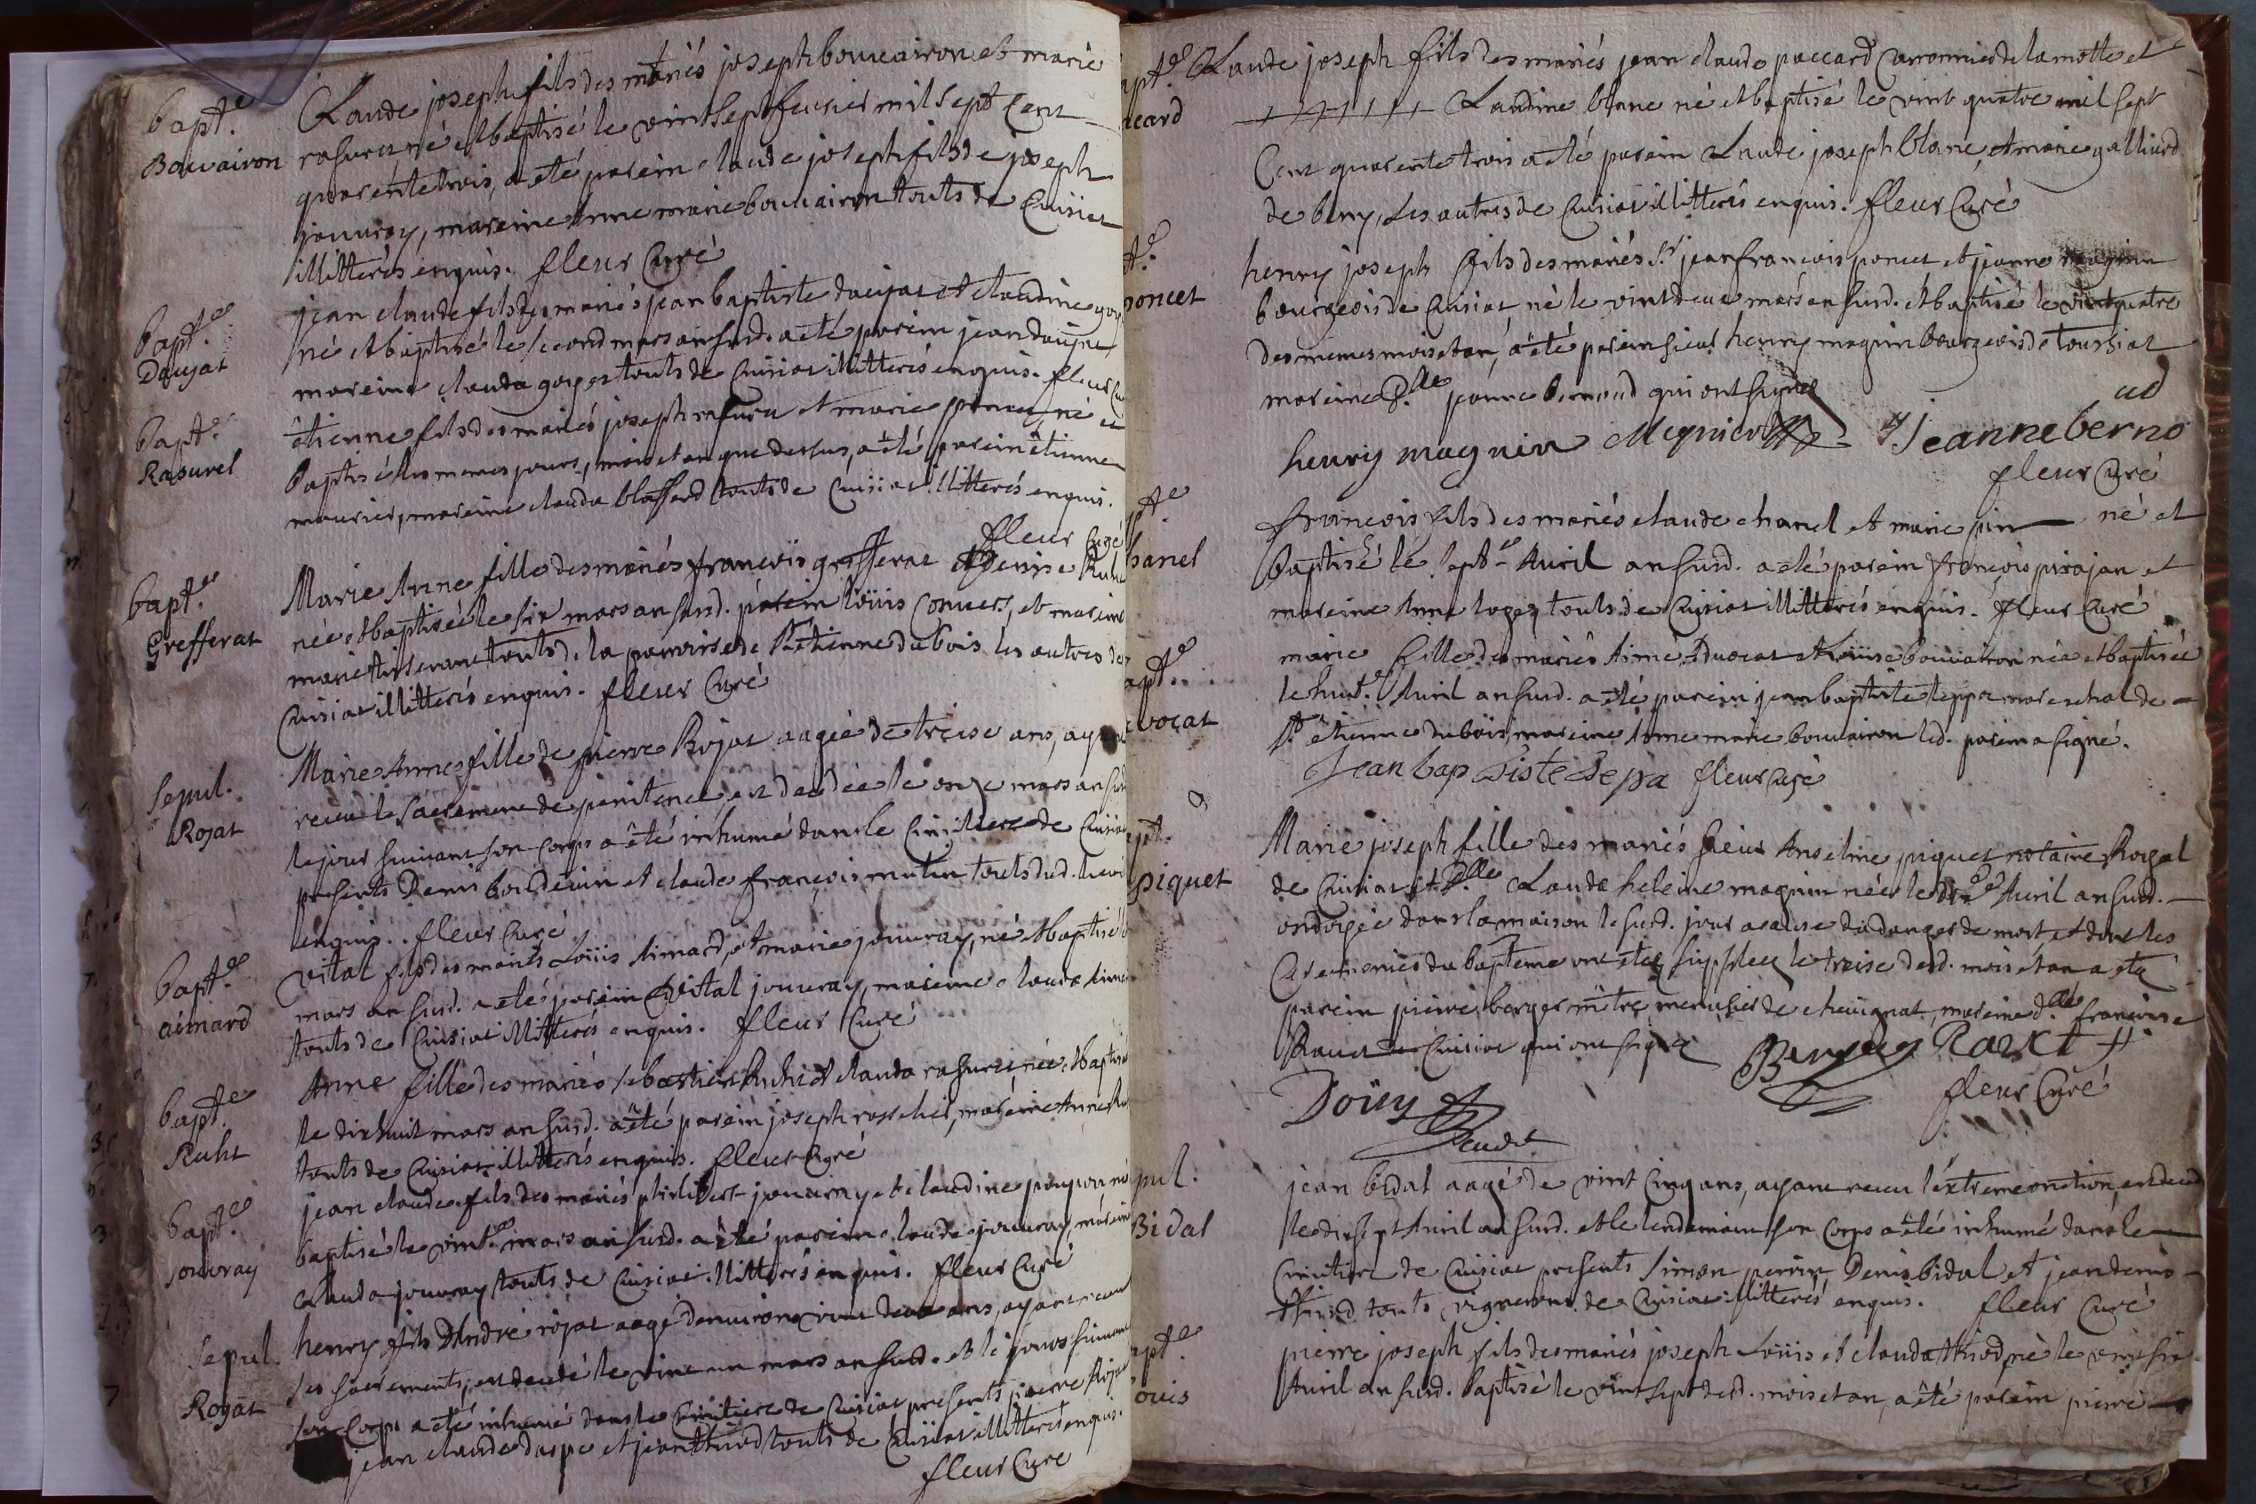 bapt.e
Bouvairon
Claude joseph fils des mariés joseph bouvairon et marie
rasurel né et baptisé le vint sept fevrier mil sept Cent
quarente trois, a eté parein claude joseph fils de joseph
jouvray, mareine Anne marie bouvairon touts de Cuisiat
illitterés enquis. fleur Curé
bapt.e
Daujat
jean claude fils des mariés jean baptiste daujat et claudine
né et baptisé le second mars an susd. a eté parein jean daujat
mareine clauda gorges touts de Cuisiat illitterés enquis. fleur
bapt.e
Rasurel
êtienne fils des mariés joseph rasurel et marie poncet, né et
Baptisé les memes jours, mois et an que dessus, a eté parein êtienne
mourier, mareine clauda blassard touts de Cuisiat illitterés enquis.
fleur Curé
bapt.e
Grefferat
Marie Anne fille des mariés françois grefferat et Denise
née et baptisée le six mars an susd. parein loüis Convers, et mareine
marie touts de la parroisse de St. êtienne du bois les autres de
Cuisiat illitterés enquis. fleur Curé
sepul.
Rojat
Marie Anne fille de pierre Rojat aagée de treise ans, ayant
receu le sacrement de penitence, est decedée le onze mars an susd.
le jour suivant son corps a êté inhumé dans le Cimitiere de Cuisiat
presents Denis bouldevin et claude françois mutin touts dud. lieu
enquis. fleur Curé
bapt.e
aimard
vital fils des mariés Loüis Aimard, et marie jouvray, né et baptisé
mars an susd. a eté parein vital jouvray, mareine clauda
touts de Cuisiat illitterés enquis. fleur Curé
bapt.e
Ruht
Anne fille des mariés sebastien Ruht et clauda rasurel née et baptisée
le dixhuit mars an susd. a êté parein joseph rosselier, mareine Anne
touts de Cuisiat illitterés enquis. fleur Curé
bapt.e
jouvray
jean claude fils des mariés philibert jouvray et claudine poupon né
baptisé le vint.e mars an susd. a êté parein claude jouvray, mareine
Clauda jouvray touts de Cuisiat illitterés enquis. fleur Curé
sepul.
Rojat
henry fils D'Andre rojat aagé d'environ vint deux ans, ayant receu
ses sacrements, est decedé le vint un mars an susd. et le jour suivant
son Corps a eté inhumé dans le Cimitiere de Cuisiat presents pierre Rojat
jean claude daspe et jean thivod touts de Cuisiat illitterés enquis.
fleur Curé
apt.e
ccard
Claude joseph fils des mariés jean claude paccard Carronnier de la motte et
Claudine blanc né et baptisé le vint quatre mil sept
Cent quarente trois a eté parein Claude joseph blanc, et marie galliard
de beny, Les autres de Cuisiat illitterés enquis. fleur Curé
t.e
poncet
henry joseph fils des mariés Sr jean françois poncet et jeanne magnin
bourgeois de Cuisiat né le vint deux mars an susd. et baptisé le vint quatre
des memes mois et an, a été parein sieur henry magnin bourgeois de toursiat
mareine D.lle jeanne bernoud qui ont signé
henry magnin Magnier Jeanne berno
ud
fleur Curé
t.e
hanel
françois fils des mariés claude chanel et marie pin né et
Baptisé le sept.e Avril an susd. a eté parein françois pirajan et
mareine Anne logez touts de Cuisiat illitterés enquis. fleur Curé
apt.e
vocat
marie fille des mariés Aimé Advocat et Loüise bouvairon née et baptisée
le huit.e Avril an susd. a eté parein jean baptiste leppa mareschal de
St. êtienne du bois, mareine Anne marie bouvairon led. parein a signé.
Jean baptiste Lepa fleur Curé
pt.
piquet
Marie joseph fille des mariés sieur Anselme piquet notaire Royal
de Cuisiat et D.lle Clauda heleine magnin née le Avril an susd.
ondoyée dans la maison le susd. jour a cause du danger de mort, et dont les
Ceremonies du bapteme ont eté supplées le treise desd. mois et an a eté
parein pierre berger mtre menusier de chevignat, mareine d.lle francoise
Ravet de Cuisiat qui ont signé Berger Ravet
Doüy
fleur Curé
pul.
Bidal
jean bidal aagé de vint Cinq ans, ayant receu l'extreme onction, est decedé
le dixsept Avril an susd. et le lendemain son Corps a eté inhumé dans le
Cimitiere de Cuisiat presents simon perrin, Denis bidal et jean denis
thivod touts vignerons de Cuisiat illitterés enquis. fleur Curé
apt.e
ouis
pierre joseph fils des mariés joseph Loüis et clauda thivod né le vint six
Avril an susd. Baptisé le vint sept desd. mois et an, a êté parein pierre